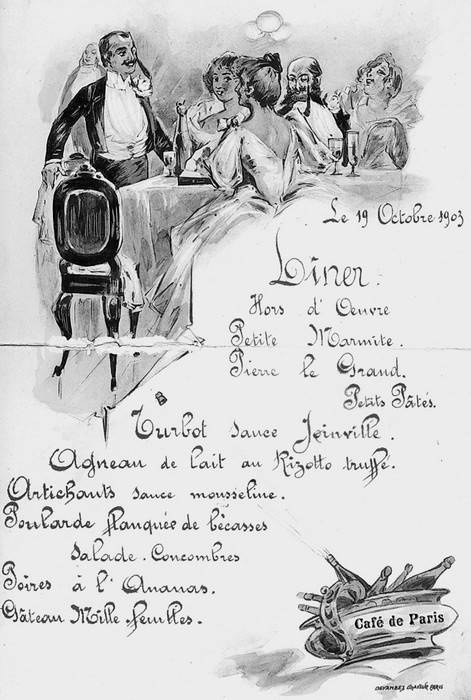 Le 19 Octobre 1903
Dîner.
Hors d'Oeuvre
Petite Marmite.
Pierre le Grand.
Petits Pâtés.
Turbot sauce Joinville.
Agneau de lait au Rizotto truffé.
Artichauts sauce mousseline.
Poularde flanquée de bécasses
Salade. Concombres
Poires à l'Ananas.
Gâteau Mille-feuilles.
Café de Paris
DEVAMBEZ GRAVEUR PARIS